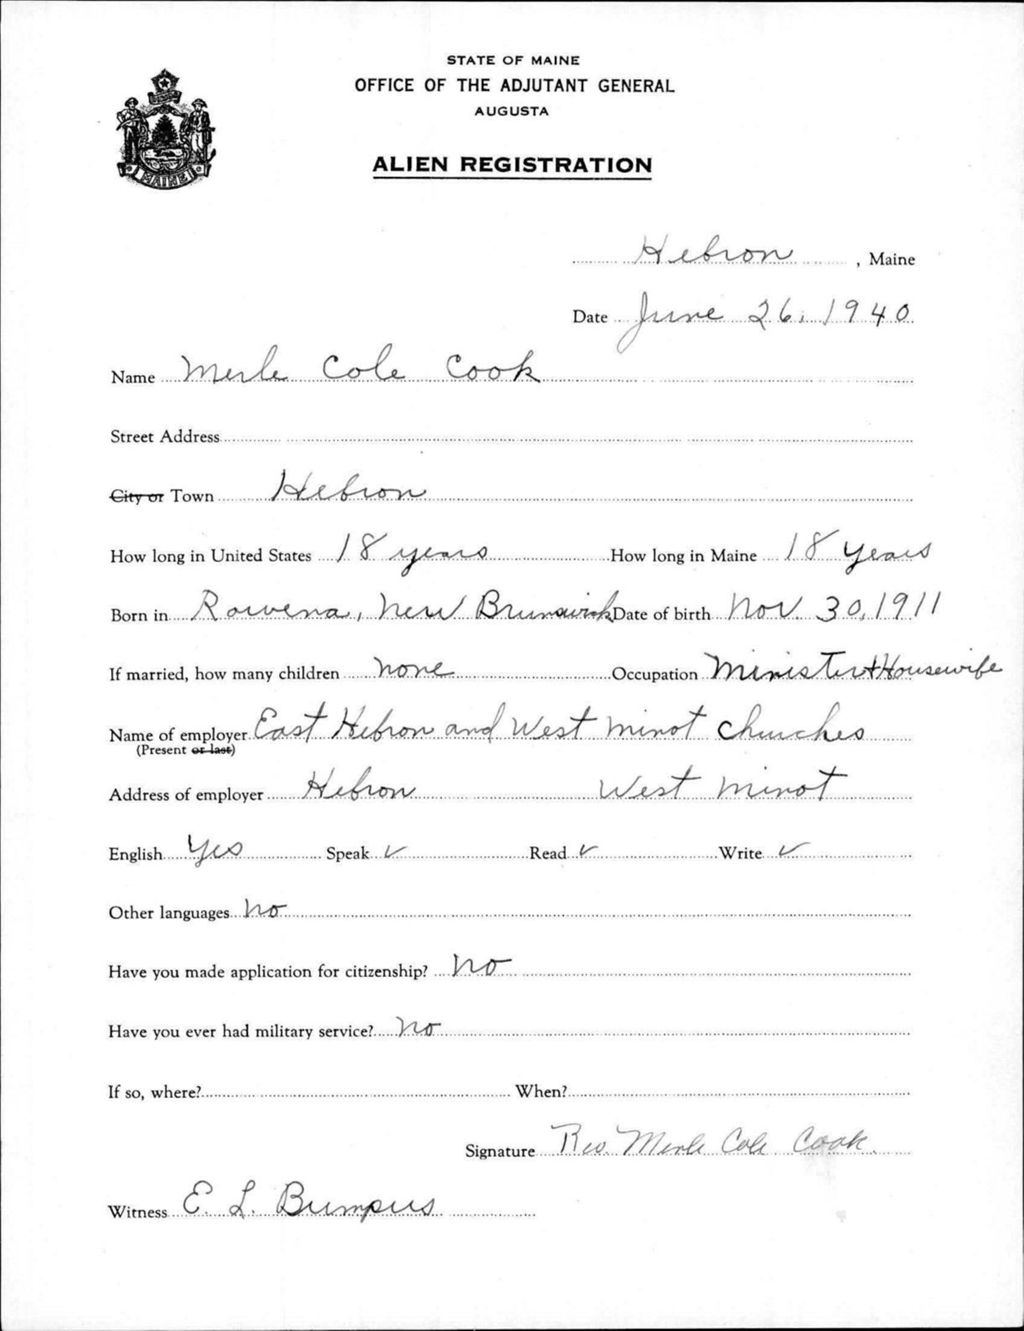 STATE OF MAINE
OFFICE OF THE ADJUTANT GENERAL
AUGUSTA
ALIEN REGISTRATION
MAINE
Hebron, Maine
Date June 26, 1940
Name Merle Cole Cook
Street Address
City or Town Hebron
How long in United States 18 years How long in Maine 18 years
Born in Rowena, New Brunswick Date of birth Nov. 30, 1911
If married, how many children none Occupation Minister + Housewife
Name of employer East Hebron and West Minot Churches
(Present or last)
Address of employer Hebron West Minot
English Yes Speak ✓ Read ✓ Write ✓
Other languages No
Have you made application for citizenship? No
Have you ever had military service? No
If so, where? When?
Signature Rev. Merle Cole Cook
Witness E. L. Bumpus